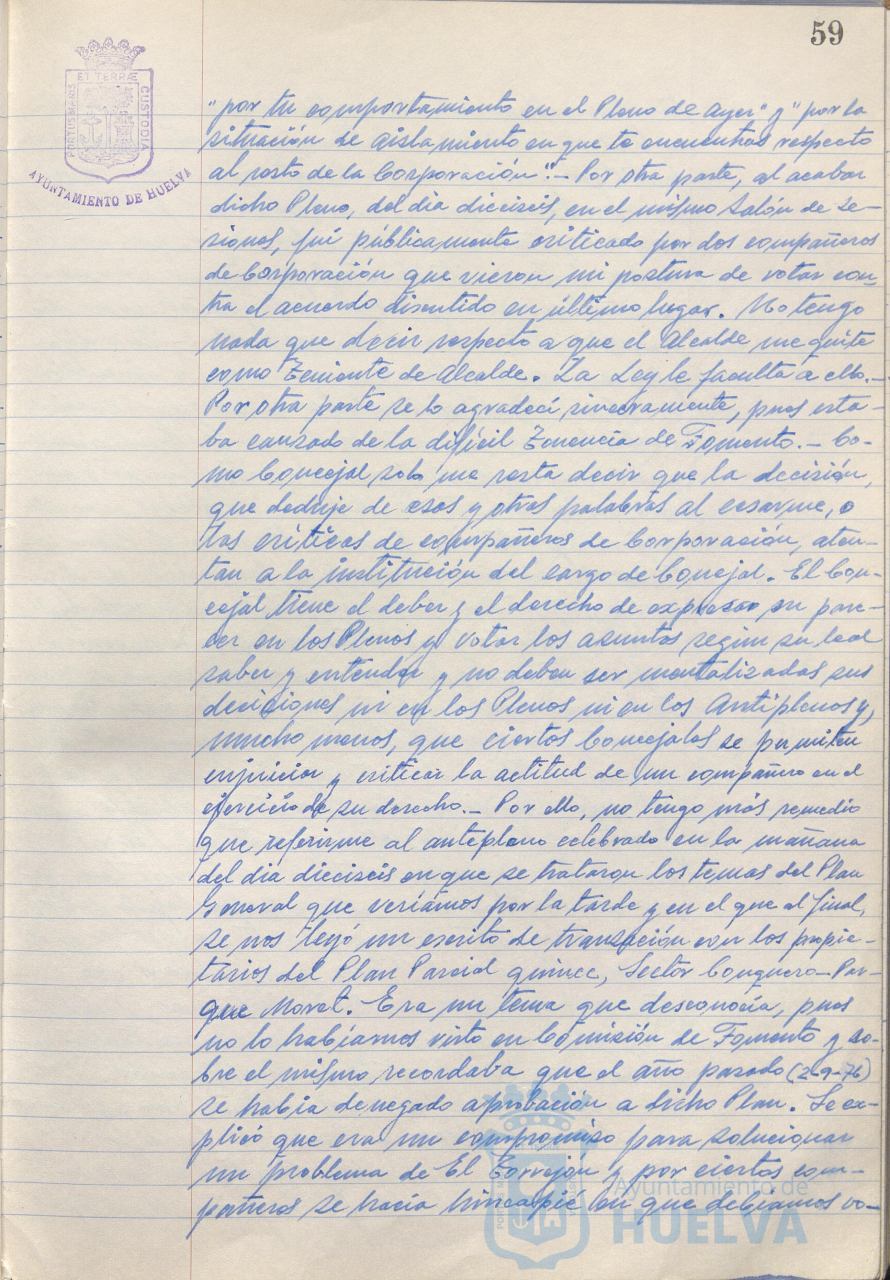 59
ET TERRÆ
PORTUS MARIS
CUSTODIA
AYUNTAMIENTO DE HUELVA
"por tu comportamiento en el Pleno de Ayer" y "por la
situación de aislamiento en que te encuentras respecto
al resto de la Corporación".- Por otra parte, al acabar
dicho Pleno, del dia dieciseis, en el mismo Salón de Se-
siones, fui públicamente criticado por dos compañeros
de Corporación que vieron mi postura de votar con-
tra el acuerdo discutido en último lugar. No tengo
nada que decir respecto a que el Alcalde me quite
como Teniente de Alcalde. La Ley le faculta a ello.-
Por otra parte se lo agradecí sinceramente, pues esta-
ba cansado de la difícil Tenencia de Fomento.- Co-
mo Concejal solo me resta decir que la decisión,
que deduje de esas y otras palabras al cesarme, o
las críticas de compañeros de Corporación, aten-
tan a la institución del cargo de Concejal. El Con-
cejal tiene el deber y el derecho de expresar su pare-
cer en los Plenos y votar los asuntos según su leal
saber y entender y no deben ser mentalizadas sus
decisiones ni en los Plenos ni en los Antiplenos y,
mucho menos, que ciertos Concejales se permitan
enjuiciar y criticar la actitud de un compañero en el
ejercicio de su derecho.- Por ello, no tengo más remedio
que referirme al antepleno celebrado en la mañana
del dia dieciseis en que se trataron los temas del Plan
General que veríamos por la tarde y en el que al final,
se nos leyó un escrito de transación con los propie-
tarios del Plan Parcial quince, Sector Conquero-Par-
que Moret. Era un tema que desconocía, pues
no lo habíamos visto en Comisión de Fomento y so-
bre el mismo recordaba que el año pasado (2-9-76)
se habia denegado aprobación a dicho Plan. Se ex-
plicó que era un compromiso para solucionar
un problema de El Torrejón y por ciertos com-
pañeros se hacía hincapié en que debíamos vo-
Ayuntamiento de
HUELVA